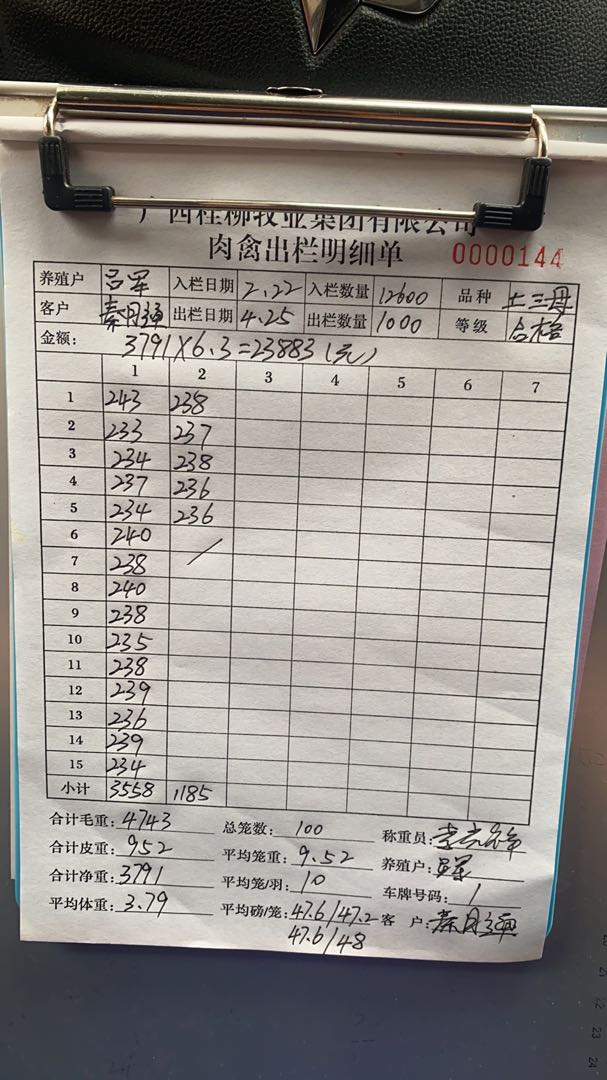 广西桂柳牧业集团有限公司
肉禽出栏明细单 0000144
养殖户 吕军 入栏日期 2.22 入栏数量 12600 品种 土三母
客户 秦月强 出栏日期 4.25 出栏数量 1000 等级 合格
金额: 3791×6.3=23883(元)
1 2 3 4 5 6 7
1 243 238
2 233 237
3 234 238
4 237 236
5 234 236
6 240
7 238
8 240
9 238
10 235
11 238
12 239
13 236
14 239
15 234
小计 3558 1185
合计毛重: 4743 总笼数: 100 称重员:
合计皮重: 952 平均笼重: 9.52 养殖户: 吕军
合计净重: 3791 平均笼/羽: 10 车牌号码: 1
平均体重: 3.79 平均磅/笼: 47.6/47.2 客 户: 秦月强
47.6/48